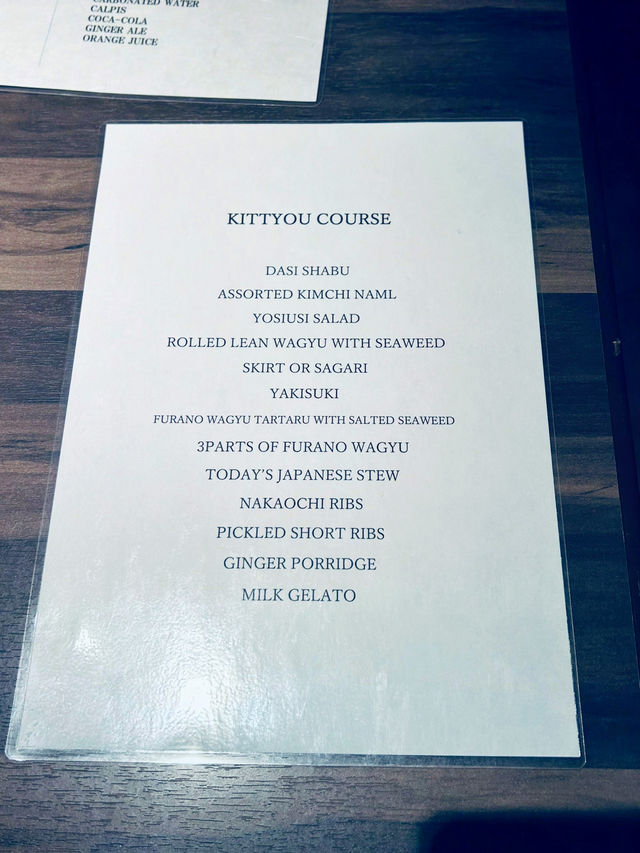 CARBONATED WATER
CALPIS
COCA-COLA
GINGER ALE
ORANGE JUICE
KITTYOU COURSE
DASI SHABU
ASSORTED KIMCHI NAML
YOSIUSI SALAD
ROLLED LEAN WAGYU WITH SEAWEED
SKIRT OR SAGARI
YAKISUKI
FURANO WAGYU TARTARU WITH SALTED SEAWEED
3PARTS OF FURANO WAGYU
TODAY'S JAPANESE STEW
NAKAOCHI RIBS
PICKLED SHORT RIBS
GINGER PORRIDGE
MILK GELATO